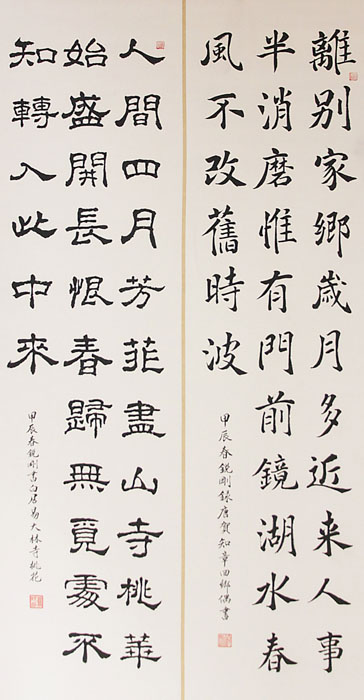 離別家鄉歲月多近来人事
半消磨惟有門前鏡湖水春
風不改舊時波
甲辰春銳剛錄唐賀知章回鄉偶書
人間四月芳菲盡山寺桃華
始盛開長恨春歸無覓處不
知轉入此中來
甲辰春銳剛書白居易大林寺桃花